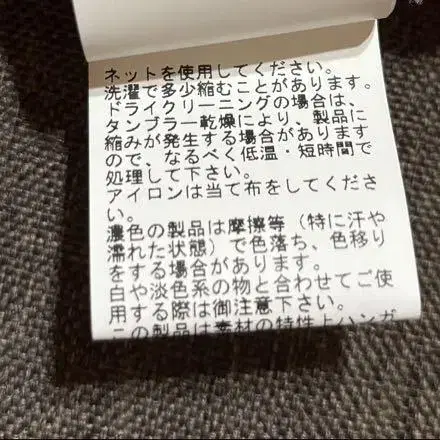 ネットを使用してください。
洗濯で多少縮むことがあります。
ドライクリーニングの場合は、
タンブラー乾燥により、製品に
縮みが発生する場合があります
ので、なるべく低温・短時間で
処理して下さい。
アイロンは当て布をしてくださ
い。
濃色の製品は摩擦等（特に汗や
濡れた状態）で色落ち、色移り
をする場合があります。
白や淡色系の物と合わせてご使
用する際は御注意下さい。
この製品は素材の特性上ハンガ